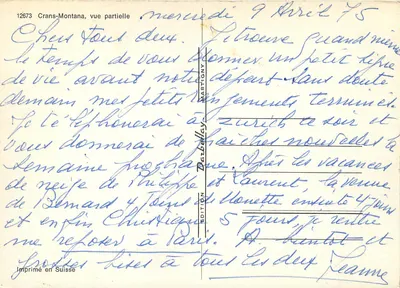 12673 Crans-Montana, vue partielle
mercredi 9 Avril 75
Chers tous deux. Je trouve quand même
le temps de vous donner un petit signe
de vie avant notre départ sans doute
demain, mes petits rangements terminés
Je téléphonerai à Zurich ce soir et
vous donnerai de fraîches nouvelles la
semaine prochaine. Après les vacances
de neige de Philippe et Laurent, la venue
de Bernard 4 jours et ensuite 4 jours
et enfin Christiane 5 jours, je rentre
me reposer à Paris. A bientôt et
grosses bises à tous les deux Jeanne
Imprimé en Suisse
EDITION Darbellay MARTIGNY